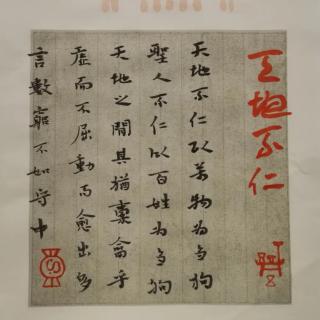 天地不仁
天地不仁以萬物為芻狗
聖人不仁以百姓為芻狗
天地之間其猶橐龠乎
虛而不屈動而愈出多
言數窮不如守中